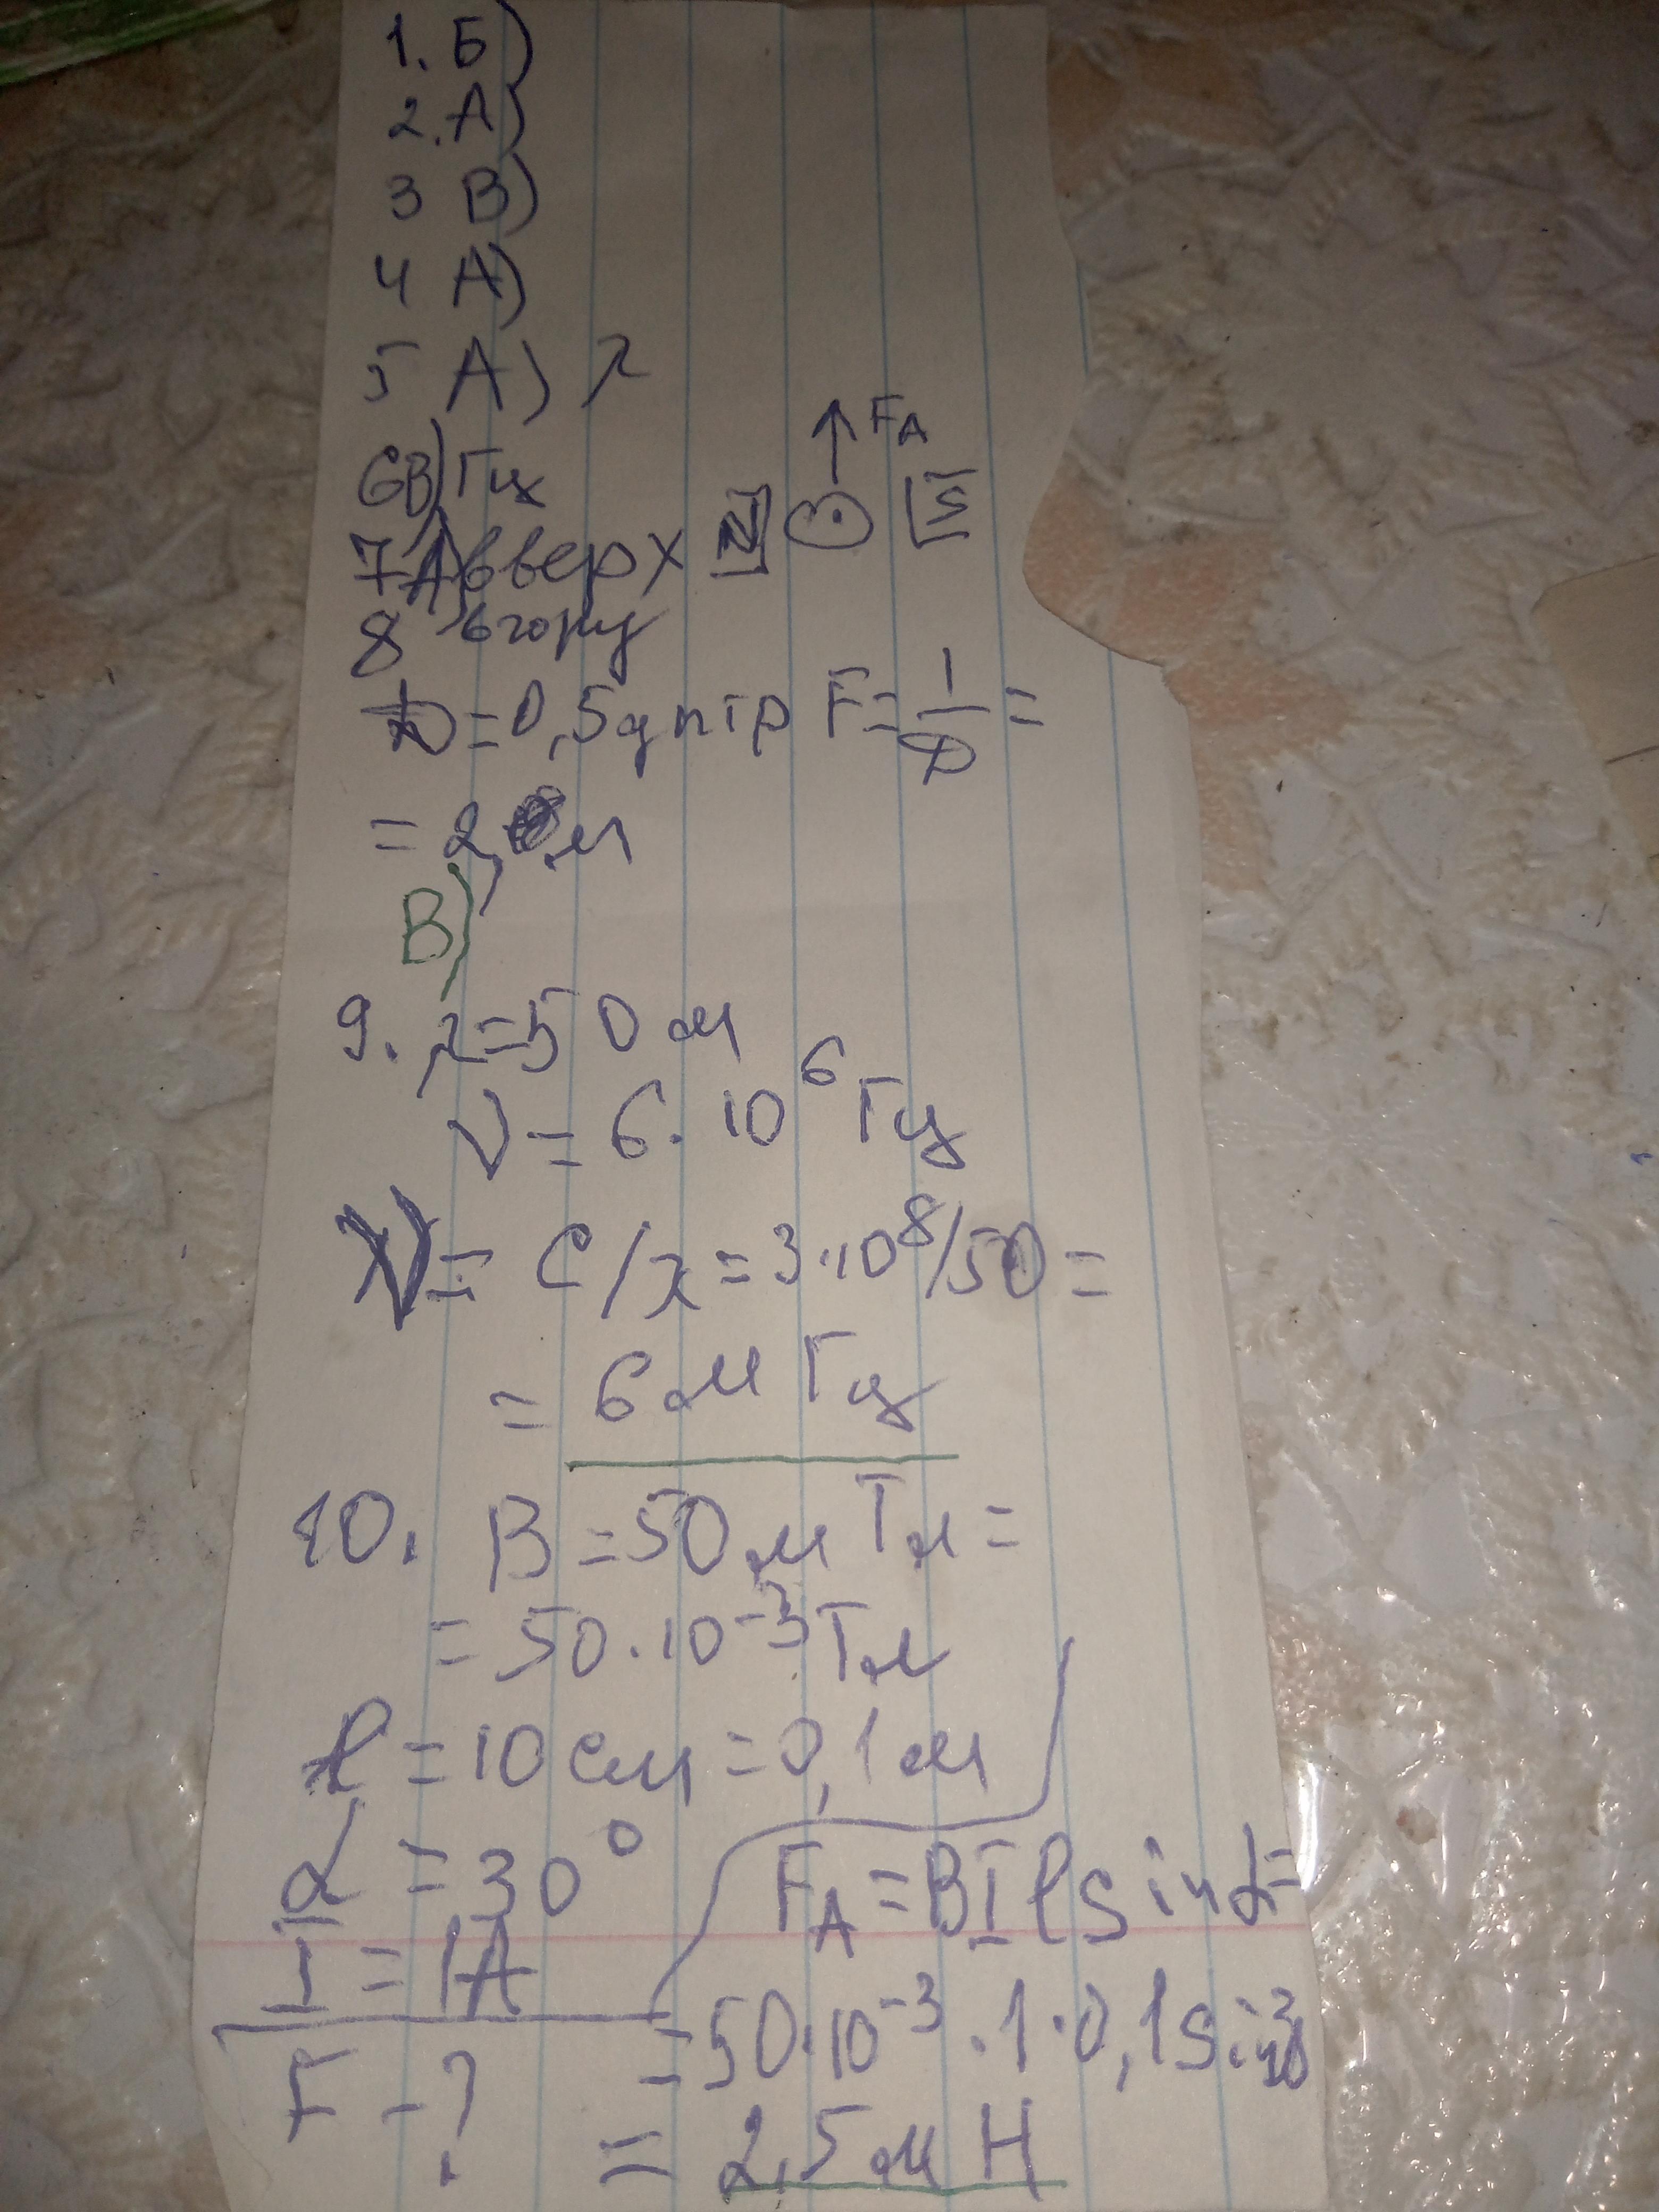 1. Б)
2. А)
3 В)
4 А)
5 А) λ
6В) Гц
7А) вверх N S FА
8 вгору
D = 0,5 дптр F = 1/D =
= 2, м
В)
9. λ = 50 м
ν = 6 · 10⁶ Гц
ν = c/λ = 3·10⁸/50 =
= 6 мГц
10. В = 50 м Тл =
= 50 · 10⁻³ Тл
l = 10 см = 0,1 м
α = 30°
FА = BIl sinα =
I = 1А
= 50·10⁻³ · 1 · 0,1 sin30
F - ?
= 2,5 м Н